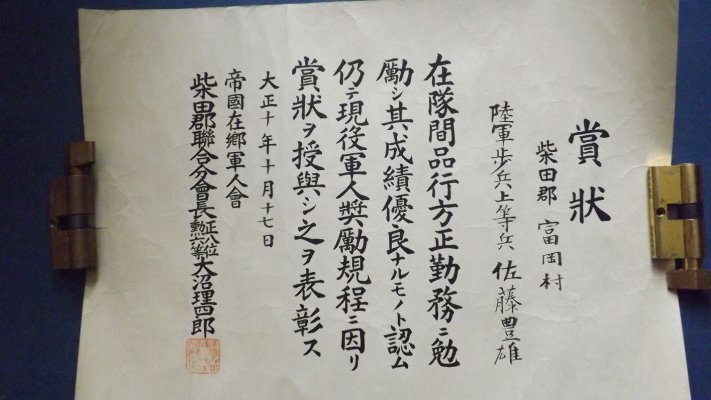 賞狀
柴田郡 富岡村
陸軍歩兵上等兵 佐藤豊雄
在隊間品行方正勤務ニ勉
勵シ其ノ成績優良ナルモノト認ム
仍テ現役軍人奬勵規程ニ因リ
賞狀ヲ授與シ之ヲ表彰ス
大正十年十月十七日
帝國在郷軍人會
柴田郡聯合分會長正八位勲六等大沼理四郎